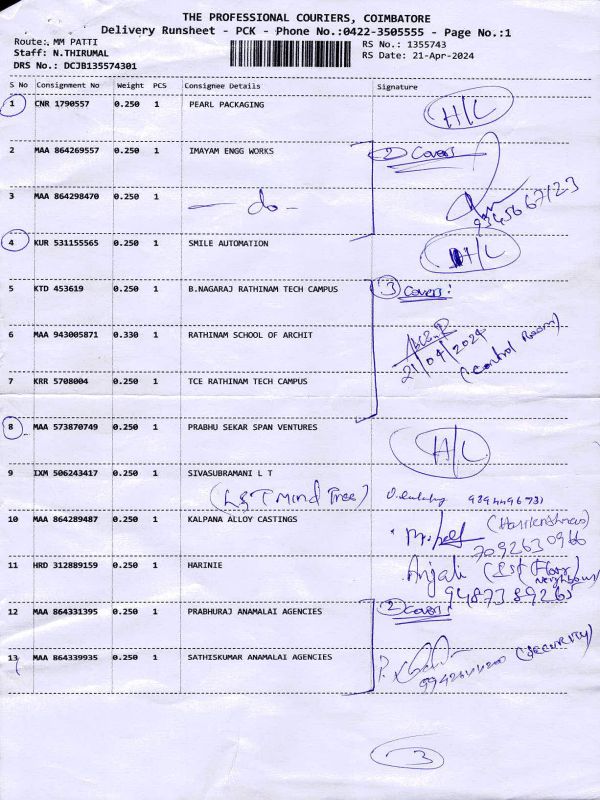 THE PROFESSIONAL COURIERS, COIMBATORE
Delivery Runsheet - PCK - Phone No.:0422-3505555 - Page No.:1
Route: MM PATTI
RS No.: 1355743
Staff: N.THIRUMAL
RS Date: 21-Apr-2024
DRS No.: DCJB135574301
S No Consignment No Weight PCS Consignee Details Signature
1 CNR 1790557 0.250 1 PEARL PACKAGING H/L
2 MAA 864269557 0.250 1 IMAYAM ENGG WORKS 2 Covers
3 MAA 864298470 0.250 1 - do -
4 KUR 531155565 0.250 1 SMILE AUTOMATION H/L
5 KTD 453619 0.250 1 B.NAGARAJ RATHINAM TECH CAMPUS 3 Covers:
6 MAA 943005871 0.330 1 RATHINAM SCHOOL OF ARCHIT
21/04/2024
(Control Room)
7 KRR 5708004 0.250 1 TCE RATHINAM TECH CAMPUS
8 MAA 573870749 0.250 1 PRABHU SEKAR SPAN VENTURES H/L
9 IXM 506243417 0.250 1 SIVASUBRAMANI L T
(L&T Mind Tree)
10 MAA 864289487 0.250 1 KALPANA ALLOY CASTINGS
7092630966
11 HRD 312889159 0.250 1 HARINIE Anjali (1st Floor Neighbour)
12 MAA 864331395 0.250 1 PRABHURAJ ANAMALAI AGENCIES 2 Covers:
13 MAA 864339935 0.250 1 SATHISKUMAR ANAMALAI AGENCIES (SECURITY)
3